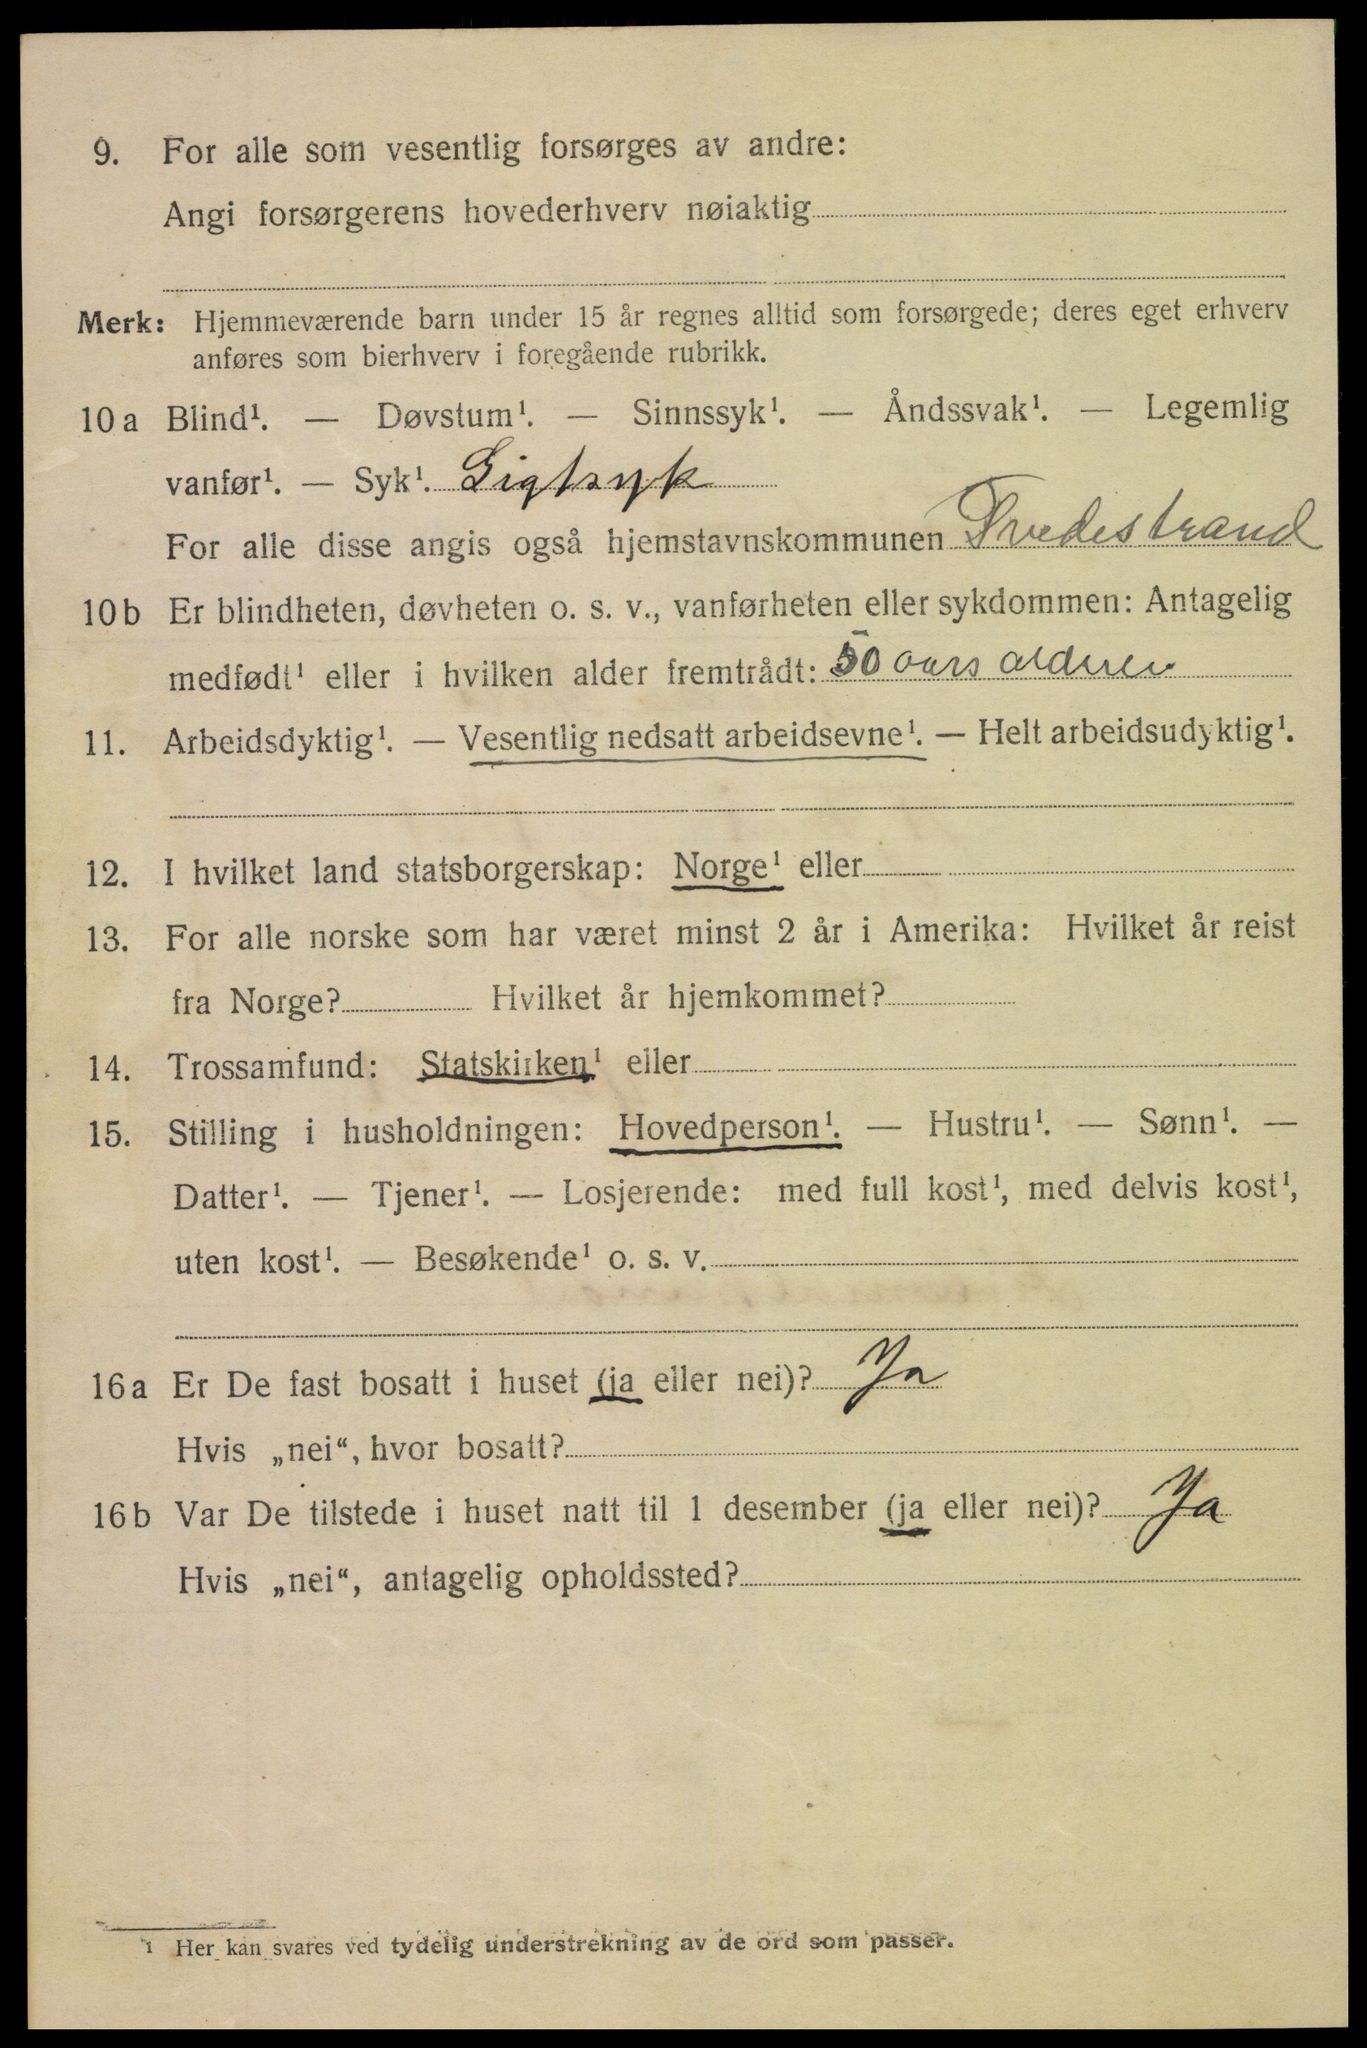 9. For alle som vesentlig forsørges av andre:
Angi forsørgerens hovederhverv nøiaktig
Merk: Hjemmeværende barn under 15 år regnes alltid som forsørgede; deres eget erhverv
anføres som bierhverv i foregående rubrikk.
10 a Blind¹. — Døvstum¹. — Sinnssyk¹. — Åndssvak¹. — Legemlig
vanfør¹. — Syk¹. Gigtsyk
For alle disse angis også hjemstavnskommunen Tvedestrand
10 b Er blindheten, døvheten o. s. v., vanførheten eller sykdommen: Antagelig
medfødt¹ eller i hvilken alder fremtrådt: 50 aars alderen
11. Arbeidsdyktig¹. — Vesentlig nedsatt arbeidsevne¹. — Helt arbeidsudyktig¹.
12. I hvilket land statsborgerskap: Norge¹ eller
13. For alle norske som har været minst 2 år i Amerika: Hvilket år reist
fra Norge? Hvilket år hjemkommet?
14. Trossamfund: Statskirken¹ eller
15. Stilling i husholdningen: Hovedperson¹. — Hustru¹. — Sønn¹. —
Datter¹. — Tjener¹. — Losjerende: med full kost¹, med delvis kost¹,
uten kost¹. — Besøkende¹ o. s. v.
16 a Er De fast bosatt i huset (ja eller nei)? Ja
Hvis „nei“, hvor bosatt?
16 b Var De tilstede i huset natt til 1 desember (ja eller nei)? Ja
Hvis „nei“, antagelig opholdssted?
¹ Her kan svares ved tydelig understrekning av de ord som passer.